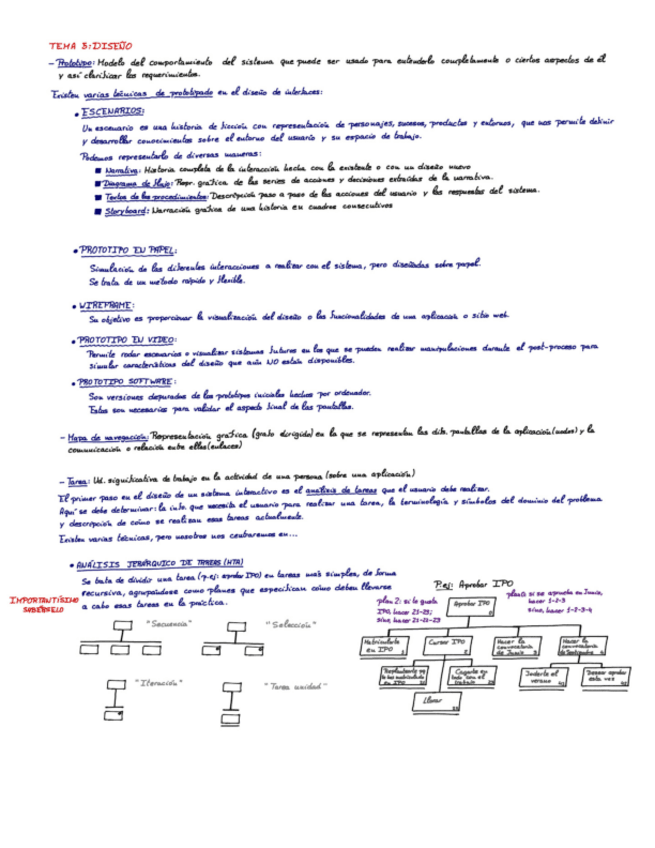 TEMA 3: DISEÑO
- Prototipo: Modelo del comportamiento del sistema que puede ser usado para entenderlo completamente o ciertos aspectos de él
y así clarificar los requerimientos.
Existen varias técnicas de prototipado en el diseño de interfaces:
• ESCENARIOS:
Un escenario es una historia de ficción con representación de personajes, sucesos, productos y entornos, que nos permite definir
y desarrollar conocimientos sobre el entorno del usuario y su espacio de trabajo.
Podemos representarlo de diversas maneras:
■ Narrativa: Historia completa de la interacción hecha con la existente o con un diseño nuevo
■ Diagrama de flujo: Repr. gráfica de las series de acciones y decisiones extraídas de la narrativa.
■ Textos de los procedimientos: Descripción paso a paso de las acciones del usuario y las respuestas del sistema.
■ Storyboard: Narración gráfica de una historia en cuadros consecutivos
• PROTOTIPO EN PAPEL:
Simulación de las diferentes interacciones a realizar con el sistema, pero diseñadas sobre papel.
Se trata de un método rápido y flexible.
• WIREFRAME:
Su objetivo es proporcionar la visualización del diseño o las funcionalidades de una aplicación o sitio web.
• PROTOTIPO EN VIDEO:
Permite rodar escenarios o visualizar sistemas futuros en los que se pueden realizar manipulaciones durante el post-proceso para
simular características del diseño que aún NO están disponibles.
• PROTOTIPO SOFTWARE:
Son versiones depuradas de los prototipos iniciales hechos por ordenador.
Estos son necesarios para validar el aspecto final de las pantallas.
- Mapa de navegación: Representación gráfica (grafo dirigido) en la que se representan las dife. pantallas de la aplicación (nodos) y la
comunicación o relación entre ellas (enlaces)
- Tarea: Ud. significativa de trabajo en la actividad de una persona (sobre una aplicación)
El primer paso en el diseño de un sistema interactivo es el análisis de tareas que el usuario debe realizar.
Aquí se debe determinar: la info. que necesita el usuario para realizar una tarea, la terminología y símbolos del dominio del problema
y descripción de cómo se realizan esas tareas actualmente.
Existen varias técnicas, pero nosotros nos centraremos en...
• ANÁLISIS JERÁRQUICO DE TAREAS (HTA)
Se trata de dividir una tarea (p.ej: aprobar IPO) en tareas más simples, de forma
recursiva, agrupándose como planes que especifican cómo deben llevarse
a cabo esas tareas en la práctica.
IMPORTANTÍSIMO
SABÉRSELO
"Secuencia"
"Selección"
"Iteración"
"Tarea unidad"
P.ej: Aprobar IPO
plan 2: si te gusta
IPO, hacer 21-23;
sino, hacer 21-22-23
Aprobar IPO
0
plan 0: si se aprueba en Junio,
hacer 1-2-3
sino, hacer 1-2-3-4
Matricularte
en IPO
1
Cursar IPO
2
Hacer la
convocatoria
de Junio
3
Hacer la
convocatoria
de Septiembre
4
Joderte el
verano
41
Desear aprobar
esta vez
42
Llorar